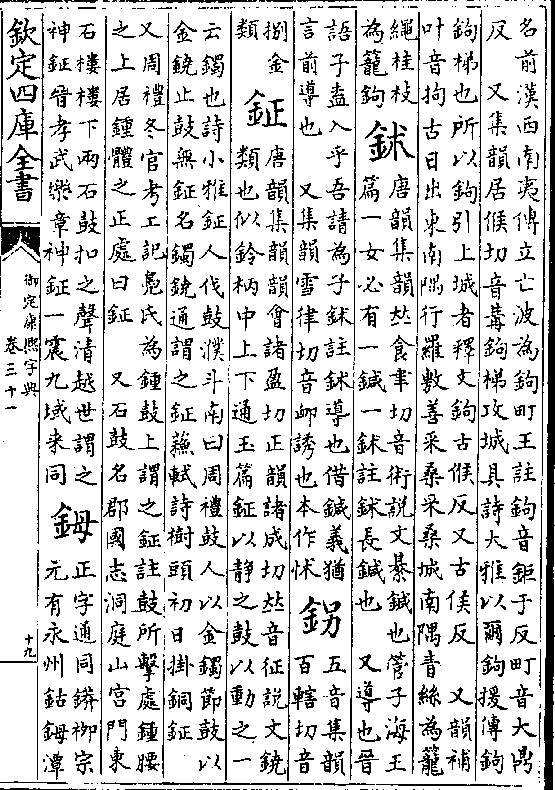 名前漢西南夷傅立亡波為鉤町王註鉤音鉅于反町音大鼎
反　又集韻居候切音冓鉤梯攻城具詩大雅以爾鉤援傳鉤
鉤梯也所以鉤引上城者釋文鉤古候反又古侯反　又韻補
叶音拘古日出東南隅行羅敷善采桑采桑城南隅青絲為籠
繩桂枝
為籠鉤
鉥
唐韻集韻𠀤食聿切音術說文綦鍼也管子海王
篇一女必有一鍼一鉥註鉥長鍼也　又導也晉
語子盍入乎吾請為子鉥註鉥導也借鍼義猶
言前導也　又集韻雪律切音䘏誘也本作怵
五音集韻
百轄切音
捌金
類
鉦
唐韻集韻韻會諸盈切正韻諸成切𠀤音征說文鐃
類也似鈴柄中上下通玉篇鉦以静之鼓以動之一
云鐲也詩小雅鉦人伐鼓濮斗南曰周禮鼓人以金鐲節鼓以
金鐃止鼓無鉦名鐲鐃通謂之鉦蘇軾詩樹頭初日掛銅鉦
又周禮冬官考工記鳧氏為鍾鼓上謂之鉦註鼓所擊處鍾腰
之上居鍾體之正處曰鉦　又石鼓名郡國志洞庭山宮門東
石樓樓下兩石鼓扣之聲清越世謂之
神鉦晉孝武樂章神鉦一震九域来同
鉧
正字通同鏻柳宗
元有永州鈷鉧潭
欽定四庫全書
御定康熙字典
卷三十一
十九